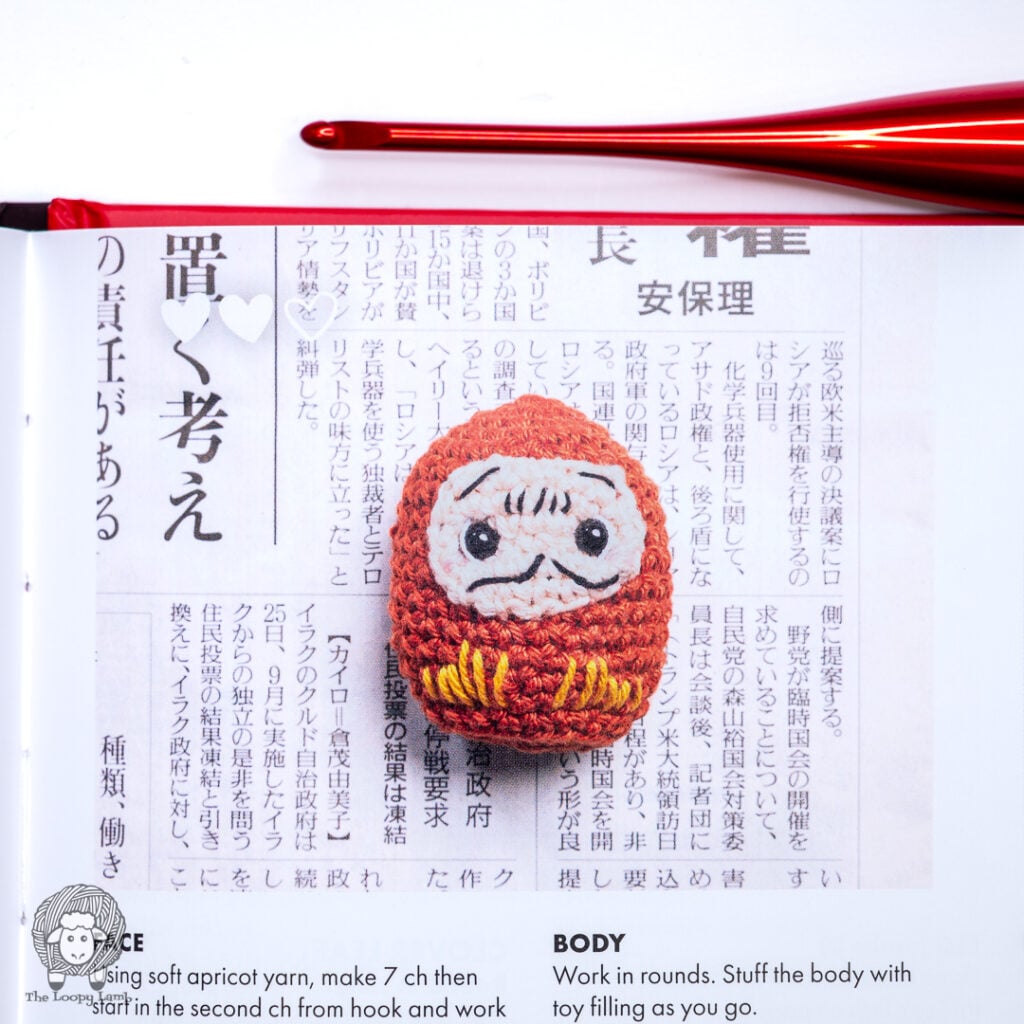 権
長
安保理
置く考え
の責任がある
巡る欧米主導の決議案にロ
シアが拒否権を行使するの
は9回目。
化学兵器使用に関して、
アサド政権と、後ろ盾にな
っているロシアは、シリア
政府軍の関与
る。国連
ロシア
してい
の調査
るという
ヘイリー大
し、「ロシアは
学兵器を使う独裁者とテロ
リストの味方に立った」と
糾弾した。
国、ボリビ
ンの3か国
案は退けら
15か国中、
11か国が賛
ボリビアが
リフスタン
リア情勢を
側に提案する。
野党が臨時国会の開催を
求めていることについて、
自民党の森山裕国会対策委
員長は会談後、記者団に
「トランプ米大統領訪日
程があり、非
時国会を開
いう形が良
治政府
停戦要求
住民投票の結果は凍結
【カイロ=倉茂由美子】
イラクのクルド自治政府は
25日、9月に実施したイラ
クからの独立の是非を問う
住民投票の結果凍結と引き
換えに、イラク政府に対し、
種類、働き
い
す
害
め
込
要
し
提
ク
作
た
れ
政
続
し
を
に
こ
FACE
Using soft apricot yarn, make 7 ch then
start in the second ch from hook and work
BODY
Work in rounds. Stuff the body with
toy filling as you go.
The Loopy Lamb